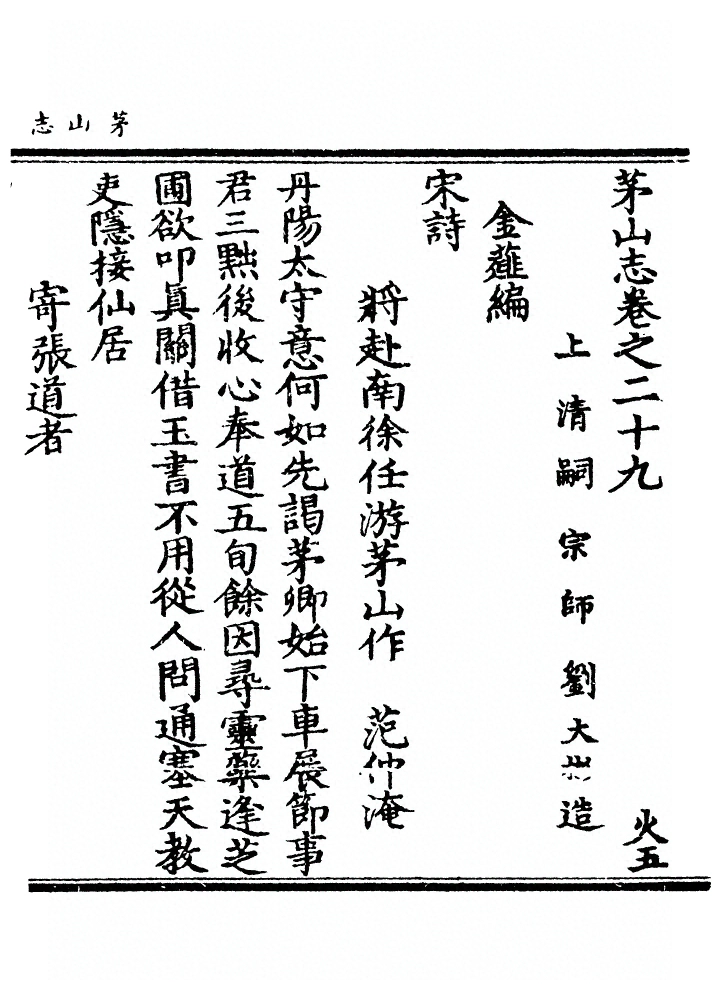 茅山志
茅山志卷之二十九
火五
上清嗣宗師劉大彬造
金薤編
宋詩
將赴南徐任游茅山作 范仲淹
丹陽太守意何如先謁茅卿始下車展節事
君三黜後收心奉道五旬餘因尋靈藥逢芝
圃欲叩眞關借玉書不用從人問通塞天教
吏隱接仙居
寄張道者